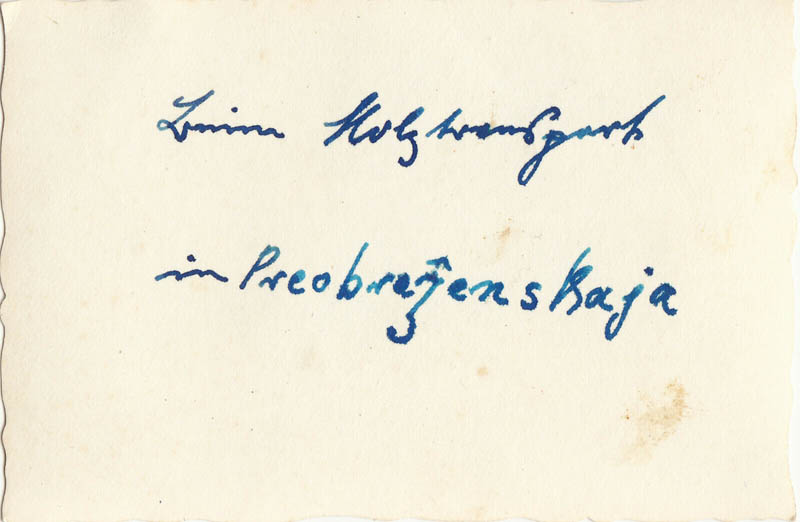 Beim Holztransport
in Preobreženskaja